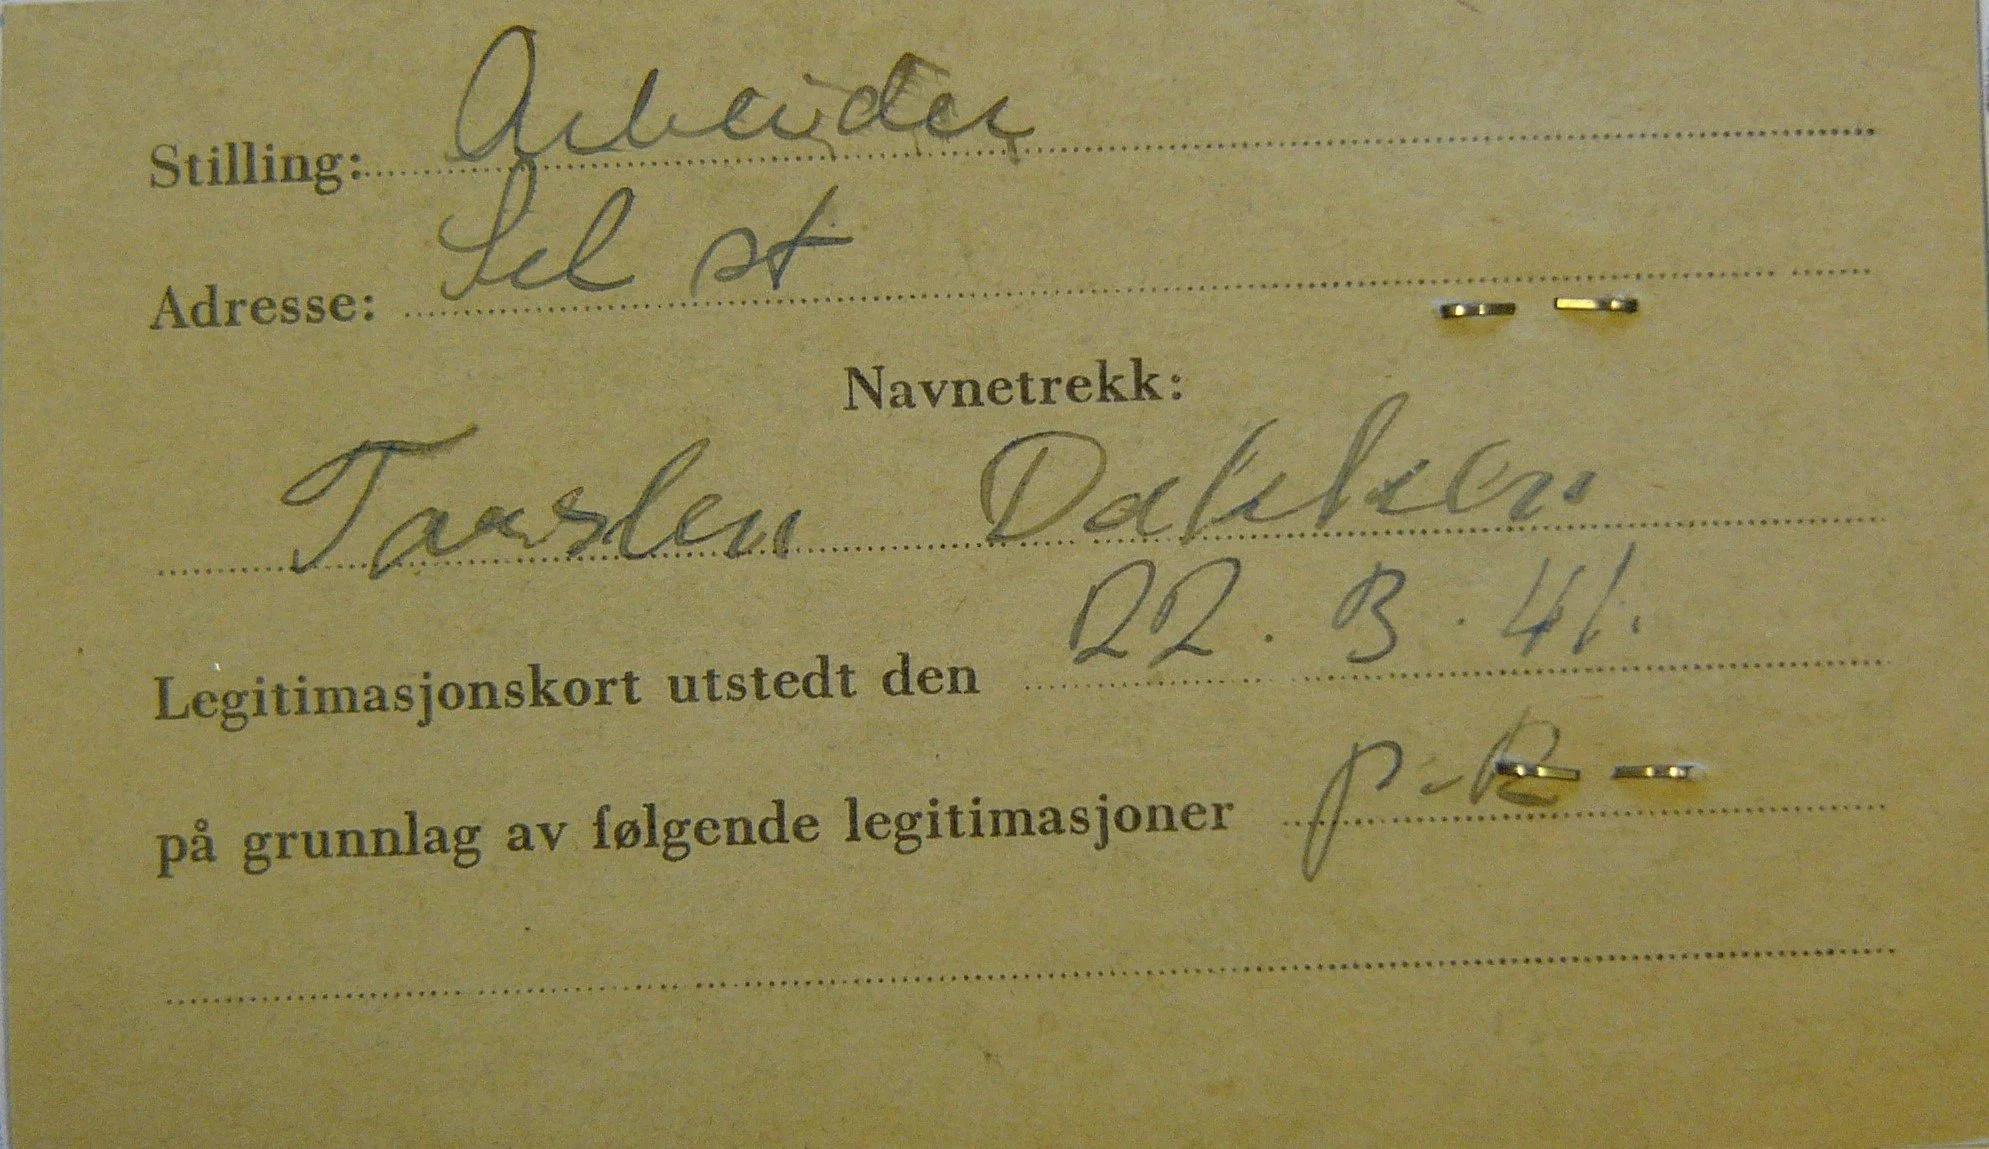 Stilling: Arbeider
Adresse: Sel st
Navnetrekk:
Torsten Dahlen
Legitimasjonskort utstedt den 22. 3. 41.
på grunnlag av følgende legitimasjoner p-R